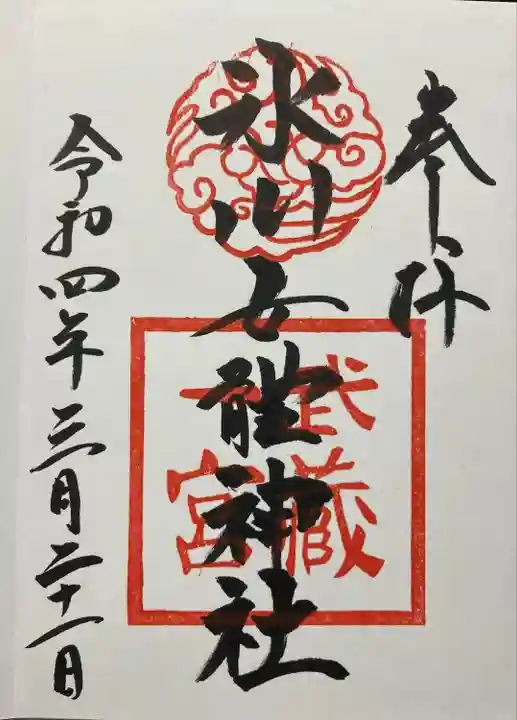 奉拝
氷川女體神社
武蔵
一宮
令和四年三月二十一日